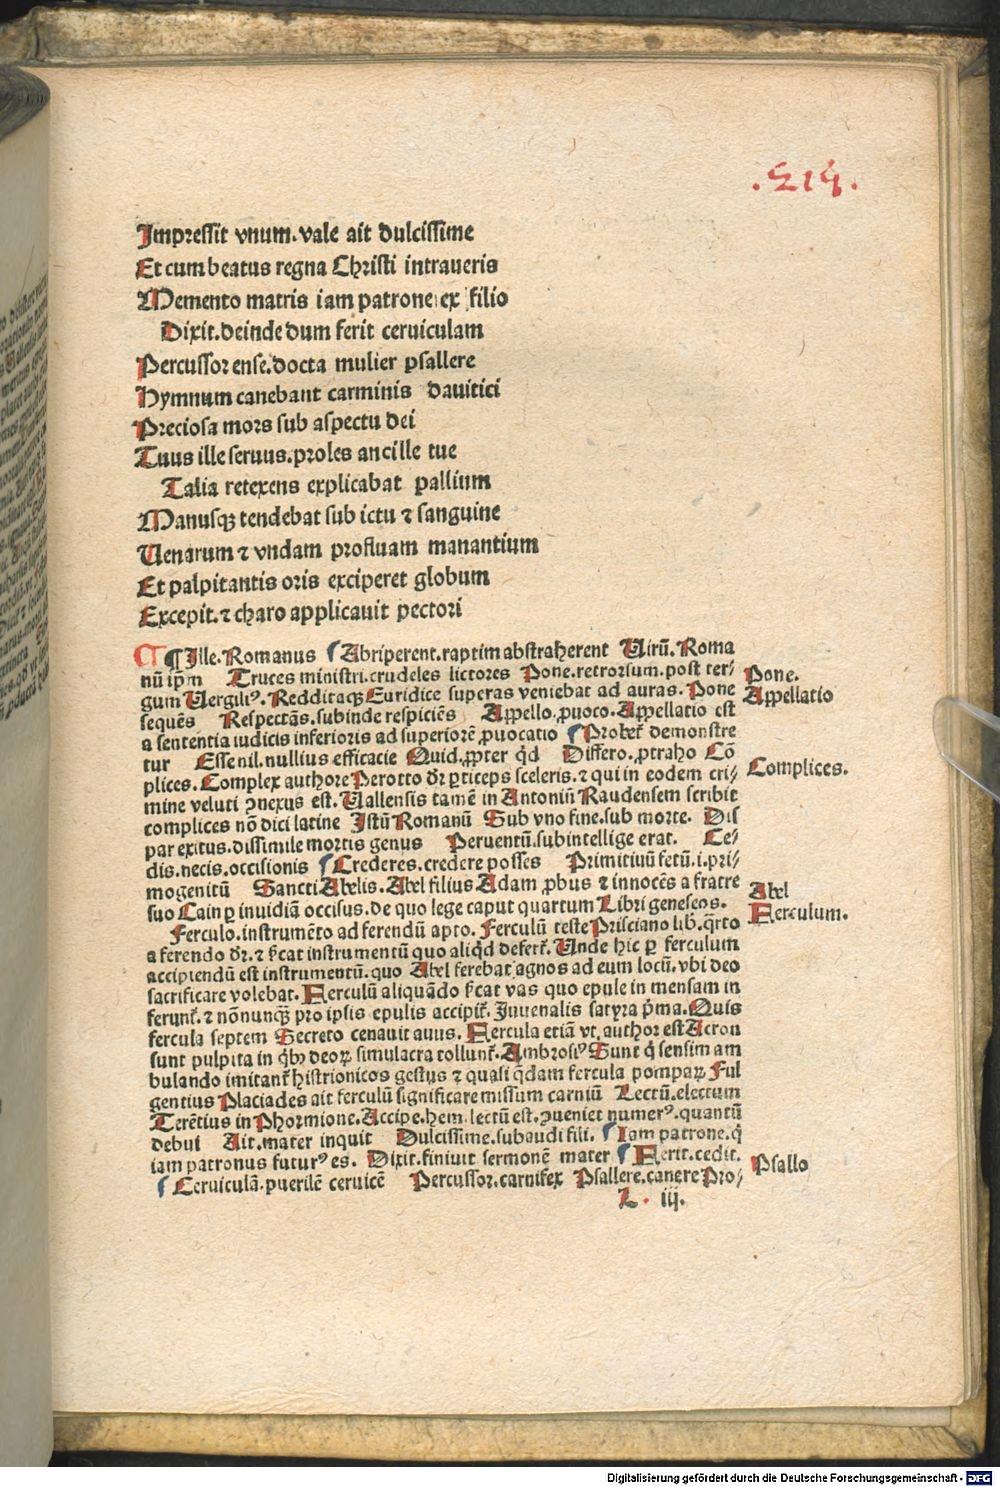 .514.
Impressit vnum.vale ait dulcissime
Et cum beatus regna Christi intraueris
Memento matris iam patrone ex filio
Dixit.deinde dum ferit ceruiculam
Percussor ense.docta mulier psallere
Hymnum canebant carminis dauitici
Preciosa mors sub aspectu dei
Tuus ille seruus.proles ancille tue
Talia retexens explicabat pallium
Manusqꝫ tendebat sub ictu ⁊ sanguine
Uenarum ⁊ vndam profluam manantium
Et palpitantis oris exciperet globum
Excepit.⁊ charo applicauit pectori
¶ Ille.Romanus Abriperent.raptim abstraherent Uirū.Roma
nū ip̄m Truces ministri.crudeles lictores Pone.retrorsum.post ter⸗
gum Uergiliꝰ.Redditaqꝫ Euridice superas veniebat ad auras.Pone
sequēs Respectās.subinde respiciēs Appello.ꝓuoco.Appellatio est
a sententia iudicis inferioris ad superiorē ꝓuocatio Probet᷑ demonstre
tur Esse nil.nullius efficacie Quid.ꝓpter qd̄ Differo.ꝓtraho Cō
plices.Complex authore Perotto dr̄ ꝑticeps sceleris.⁊ qui in eodem cri⸗
mine veluti ꝯnexus est.Uallensis tamē in Antoniū Raudensem scribit
complices nō dici latine Istū Romanū Sub vno fine.sub morte. Dis
par exitus.dissimile mortis genus Peruentū.subintellige erat. Ce⸗
dis.necis.occisionis Crederes.credere posses Primitiuū fetū.i.pri⸗
mogenitū Sancti Abelis.Abel filius Adam ꝓbus ⁊ innocēs a fratre
suo Cain ꝑ inuidiā occisus.de quo lege caput quartum Libri geneseos.
Ferculo.instrumēto ad ferendū apto. Ferculū teste Prisciano lib.qrto
a ferendo dr̄.⁊ sc̄at instrumentū quo aliqd defert᷑.Unde hic ꝑ ferculum
accipiendū est instrumentū.quo Abel ferebat agnos ad eum locū.vbi deo
sacrificare volebat.Ferculū aliquādo sc̄at vas quo epule in mensam in
ferunt᷑.⁊ nōnunqꝫ pro ipsis epulis accipit᷑.Iuuenalis satyra p̄ma.Quis
fercula septem Secreto cenauit auus.Fercula etiā vt author est Acron
sunt pulpita in qbꝰ deoꝝ simulacra tollunt᷑.Ambrosiꝰ Sunt q̄ sensim am
bulando imitant᷑ histrionicos gestus ⁊ quasi qdam fercula pompaꝝ Ful
gentius Placiades ait ferculū significare missum carniū Lectū.electum
Terētius in Phormione.Accipe.hem.lectū est.ꝯueniet numerꝰ.quantū
debui Ait.mater inquit Dulcissime.subaudi fili. Iam patrone.q̄
iam patronus futurꝰ es. Dixit.finiuit sermonē mater Ferit.cedit.
Ceruiculā.puerilē ceruicē Percussor.carnifex Psallere.canere Pro⸗
L. iij.
Pone.
Appellatio
Complices.
Abel
Ferculum.
Psallo
Digitalisierung gefördert durch die Deutsche Forschungsgemeinschaft - DFG